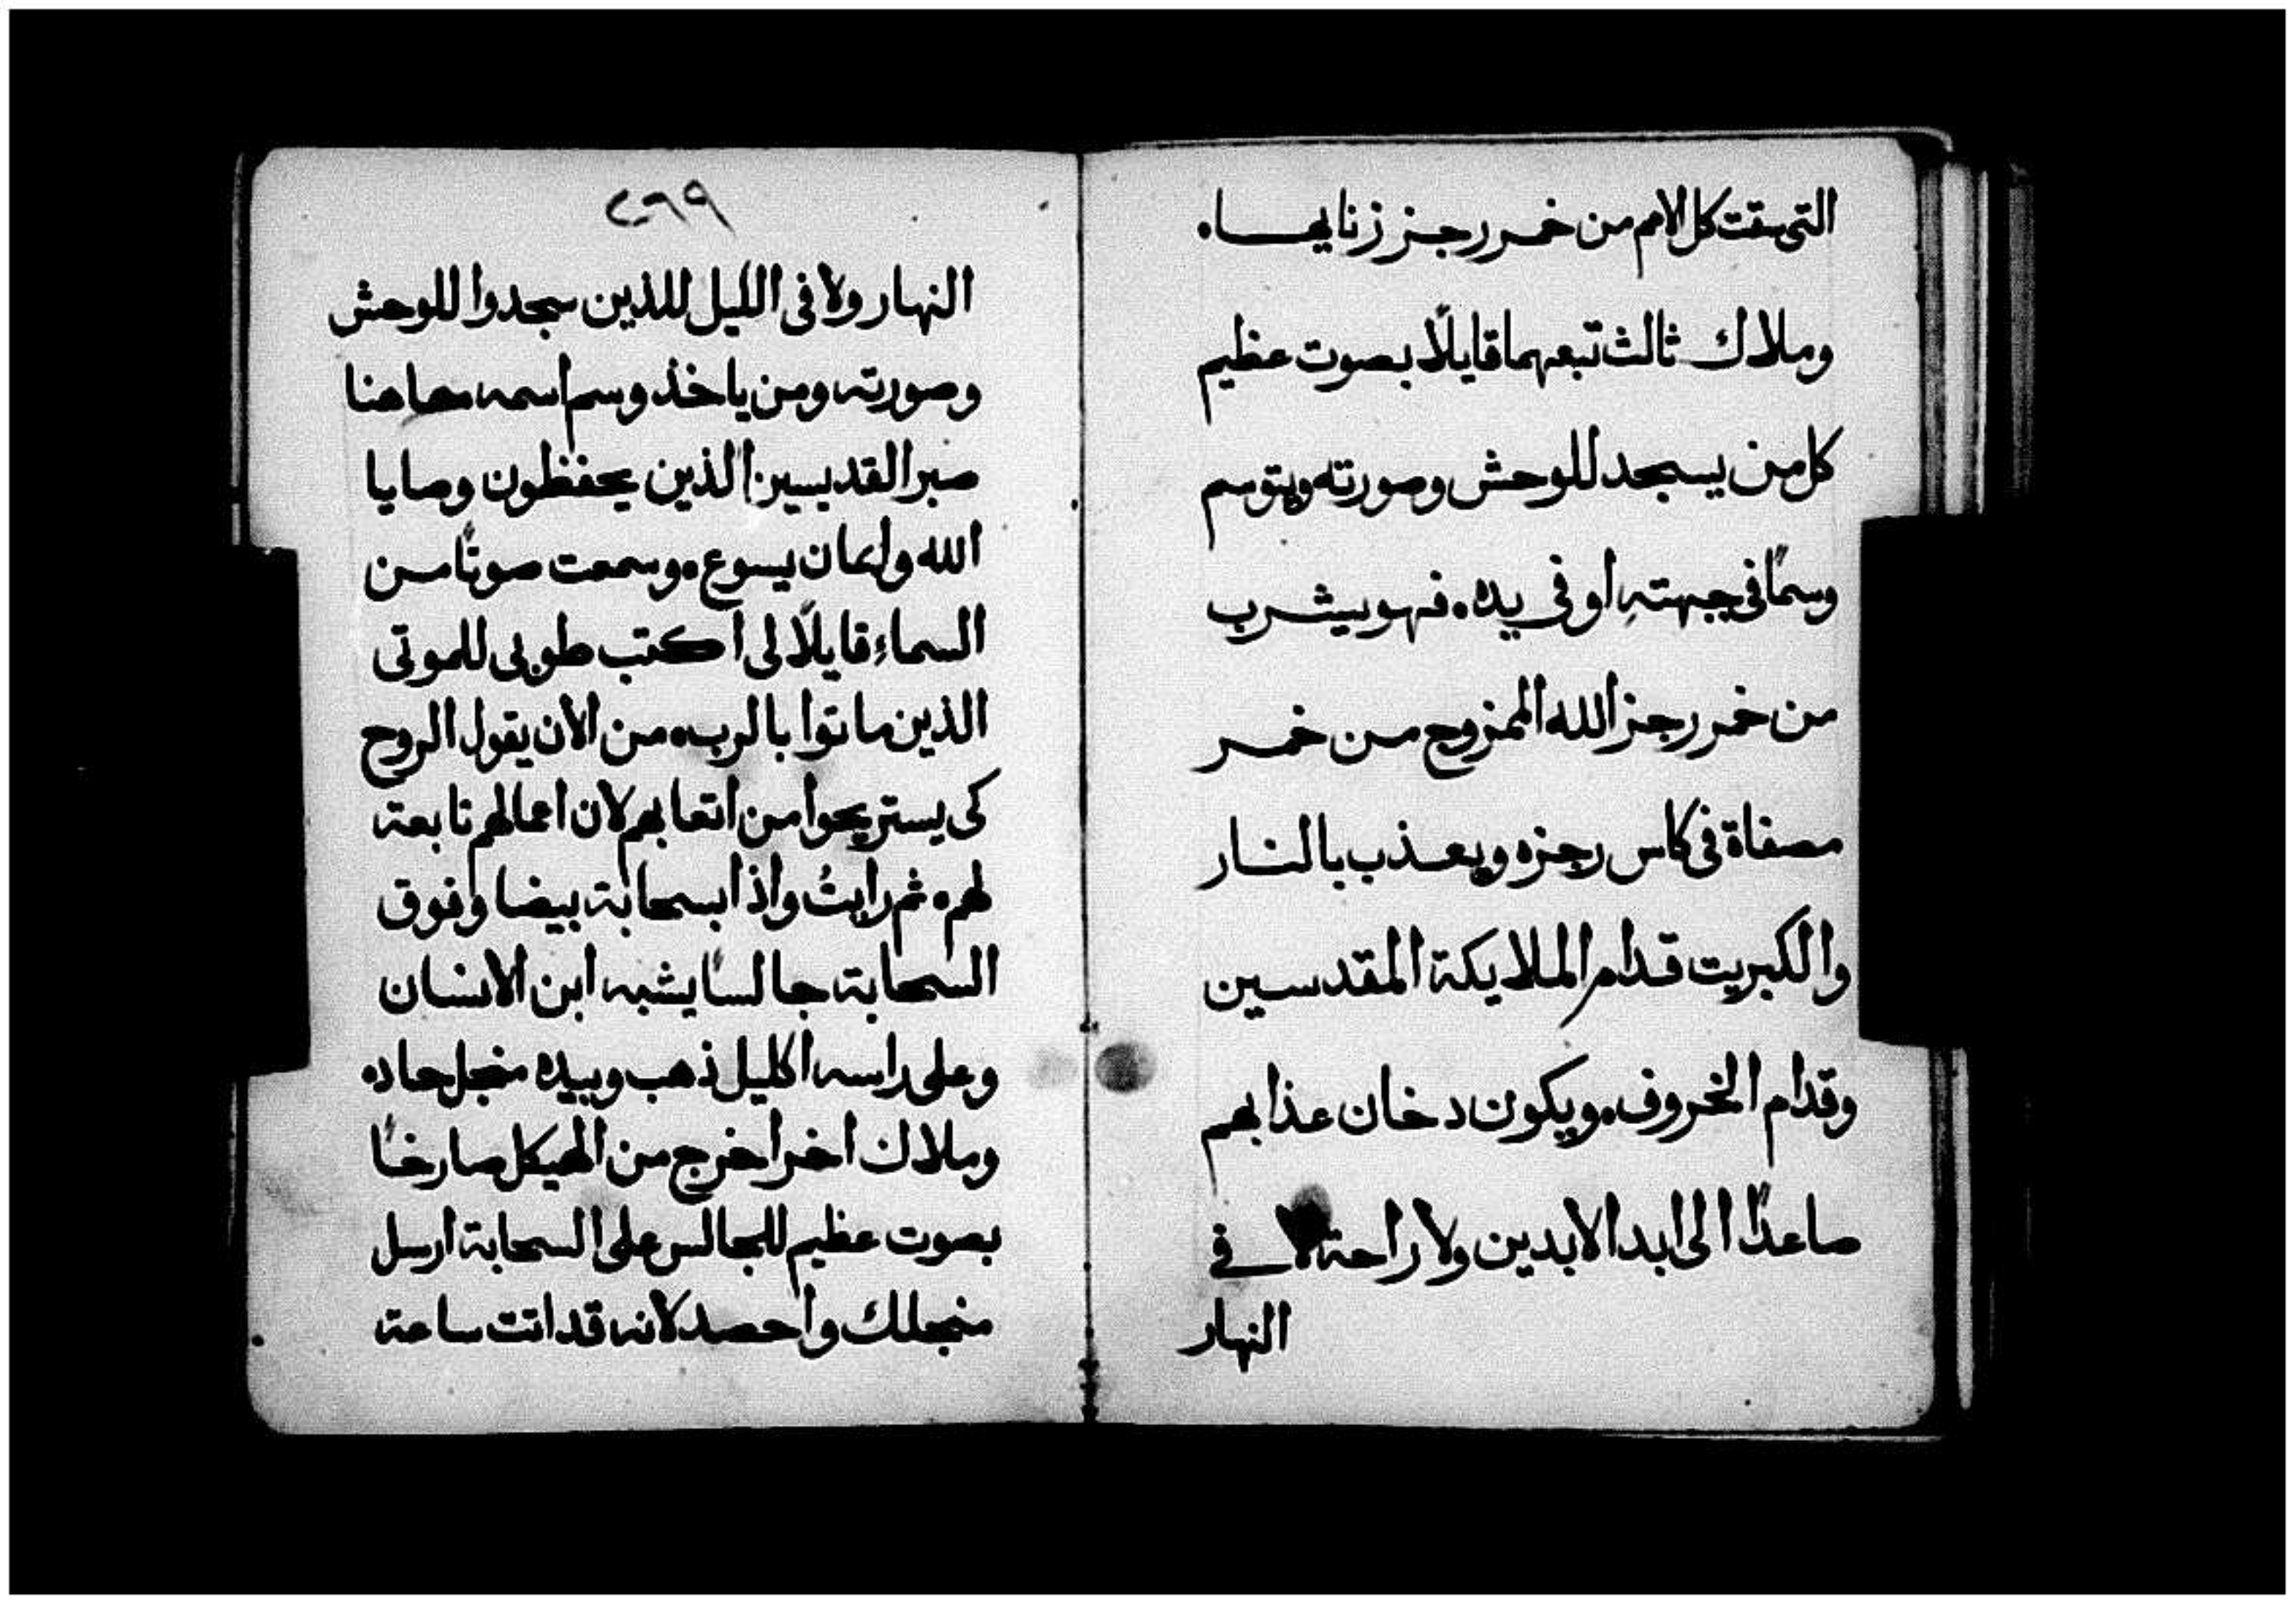 التى سقت كل الامم من خمر رجز زنايها ه
وملاك ثالث تبعهما قايلًا بصوت عظيم
كل من يسجد للوحش وصورته ويتوسم
وسمًا فى جبهتهِ او فى يده ه فهو يشرب
من خمر رجز الله الممزوج من خمر
مصفاة فى كاس رجزه ويعذب بالنار
والكبريت قدام الملايكة المقدسين
وقدام الخروف ه ويكون دخان عذابهم
صاعدًا الى ابد الابدين ولا راحة لا فى
النهار
النهار ولا فى الليل للذين سجدوا للوحش
وصورته ومن ياخذ وسم اسمه هاهنا
صبر القديسين الذين يحفظون وصايا
الله وايمان يسوع ه وسمعت صوتًا من
السماءِ قايلًا لى اكتب طوبى للموتى
الذين ماتوا بالرب ه من الان يقول الروح
كى يستريحوا من اتعابهم لان اعمالهم تابعة
لهم ه ثم رايتُ واذا بسحابة بيضا وفوق
السحابة جالسًا يشبه ابن الانسان
وعلى راسه اكليل ذهب وبيده منجل حاد ه
وملاك اخر اخرج من الهيكل صارخًا
بصوت عظيم للجالس على السحابة ارسل
منجلك واحصد لانه قد اتت ساعة